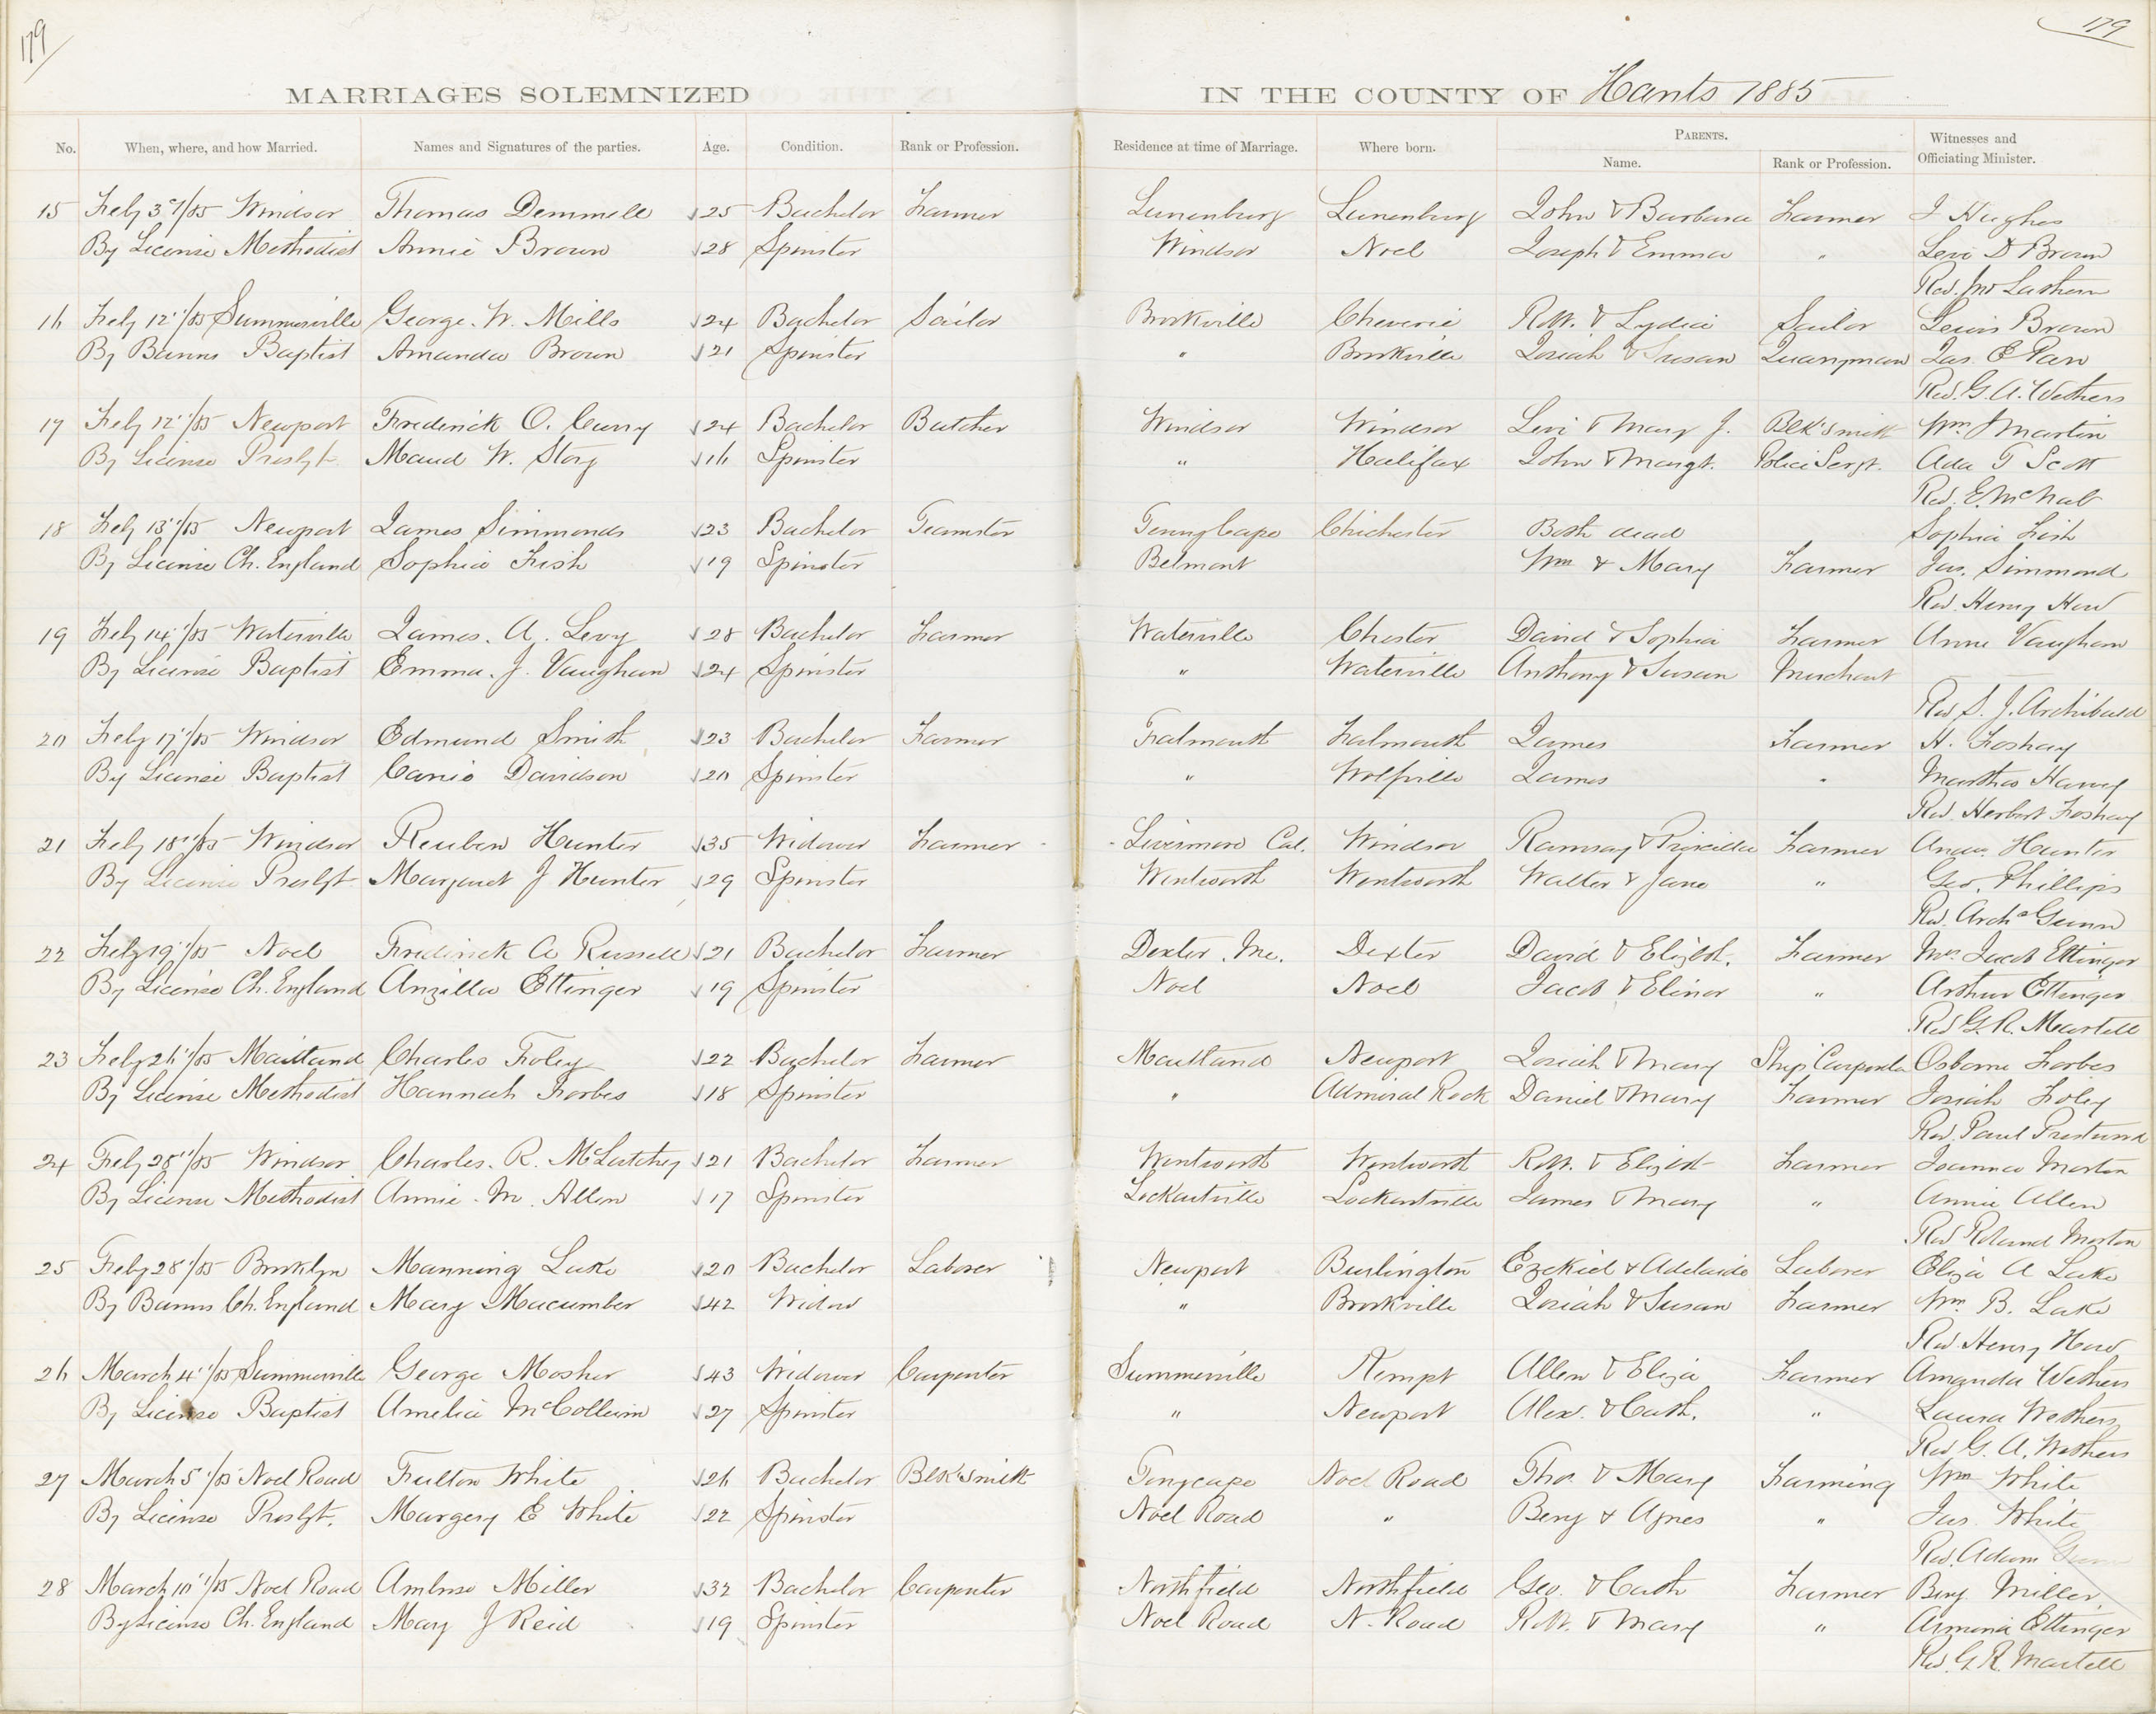 179
179
MARRIAGES SOLEMNIZED IN THE COUNTY OF Hants 1885
No. When, where, and how Married. Names and Signatures of the parties. Age. Condition. Rank or Profession. Residence at time of Marriage. Where born. PARENTS. Name. Rank or Profession. Witnesses and Officiating Minister.
15 Feby 3d/85 Windsor Thomas Demmell 25 Bachelor Farmer Lunenburg Lunenburg John & Barbara Farmer J Hughes
By License Methodist Annie Brown 28 Spinster Windsor Noel Joseph & Emma " Levi D Brown
Rev. Jno Lathern
16 Feby 12"/85 Summerville George. W. Mills 24 Bachelor Sailor Brookville Cheverie Robt. & Lydia Sailor Lewis Brown
By Banns Baptist Amanda Brown 21 Spinster " Brookville Josiah & Susan Quarryman Jas. E
Rev. G. A. Wethers
17 Feby 12"/85 Newport Frederick O. Curry 24 Bachelor Butcher Windsor Windsor Levi & Mary J. Blk'smith Wm J Martin
By License Presbyt. Maud W. Story 16 Spinster " Halifax John & Margt. Police Sergt. Ada T Scott
Rev. E. McNab
18 Feby 13"/85 Newport James Simmonds 23 Bachelor Teamster Tenny Cape Chichester Both dead Sophia Fish
By License Ch. England Sophia Fish 19 Spinster Belmont Wm & Mary Farmer Jas. Simmond
Rev. Henry How
19 Feby 14"/85 Waterville James. A. Levy 28 Bachelor Farmer Waterville Chester David & Sophia Farmer Anne Vaughan
By License Baptist Emma. J. Vaughan 24 Spinster " Waterville Anthony & Susan Merchant
Rev S. J. Archibald
20 Feby 17"/85 Windsor Edmund Smith 23 Bachelor Farmer Falmouth Falmouth James Farmer H. Foshay
By License Baptist Canie Davidson 20 Spinster " Wolfville James " Martha Harvey
Rev. Herbert Foshay
21 Feby 18"/85 Windsor Reuben Hunter 35 Widower Farmer Livermore Cal. Windsor Ramsay & Priscilla Farmer Andw. Hunter
By License Presbyt Margaret J Hunter 29 Spinster Wentworth Wentworth Walter & Jane " Geo. Phillips
Rev. Archd Gunn
22 Feby 19"/85 Noel Frederick A Russell 21 Bachelor Farmer Dexter. Me. Dexter David & Elizbth. Farmer Mrs Jacob Ettinger
By License Ch. England Anzilla Ettinger 19 Spinster Noel Noel Jacob & Elinor " Arthur Ettinger
Rev G. R. Martell
23 Feby 26"/85 Maitland Charles Foley 22 Bachelor Farmer Maitland Newport Josiah & Mary Ship Carpenter Osborne Forbes
By License Methodist Hannah Forbes 18 Spinster " Admiral Rock Daniel & Mary Farmer Josiah Foley
Rev. Paul Prestwood
24 Feby 28"/85 Windsor Charles. R. McLatchey 21 Bachelor Farmer Wentworth Wentworth Robt. & Elizbth Farmer Joanna Morton
By License Methodist Annie. M. Allen 17 Spinster Lockartville Lockartville James & Mary " Annie Allen
Rev Roland Morton
25 Feby 28"/85 Brooklyn Manning Lake 20 Bachelor Laborer Newport Burlington Ezekiel & Adelaide Laborer Eliza A Lake
By Banns Ch. England Mary Macumber 42 Widow " Brookville Josiah & Susan Farmer Wm. B. Lake
Rev Henry How
26 March 4"/85 Summerville George Mosher 43 Widower Carpenter Summerville Kempt Allen & Eliza Farmer Amanda Wethers
By License Baptist Amelia McCollum 27 Spinster " Newport Alex. & Cath. " Laura Wethers
Rev G. A. Wethers
27 March 5"/85 Noel Road Fulton White 26 Bachelor Blk'smith Tenycape Noel Road Tho. & Mary Farming Wm White
By License Presbyt. Margery E White 22 Spinster Noel Road " Benj & Agnes " Jas. White
Rev. Adam Gunn
28 March 10"/85 Noel Road Ambrose Miller 32 Bachelor Carpenter Northfield Northfield Geo. & Cath Farmer Benj Miller
By License Ch. England Mary J Reid 19 Spinster Noel Road N. Road Robt. & Mary " Armenia Ettinger
Rev. G. R. Martell